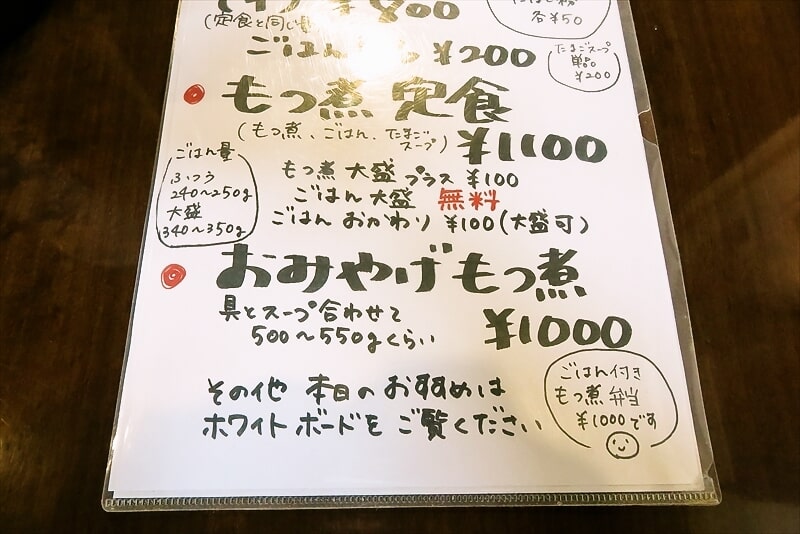 ¥800
(定食と同じ
各¥50
ごはん ¥200
たまごスープ
単品
¥200
もつ煮 定食
(もつ煮、ごはん、たまごスープ)
¥1100
ごはん量
ふつう
240〜250g
大盛
340〜350g
もつ煮 大盛 プラス ¥100
ごはん 大盛 無料
ごはん おかわり ¥100(大盛可)
おみやげ もつ煮
具とスープ合わせて
500〜550gくらい
¥1000
ごはん付き
もつ煮 弁当
¥1000です
その他 本日の おすすめは
ホワイト ボードを ご覧ください